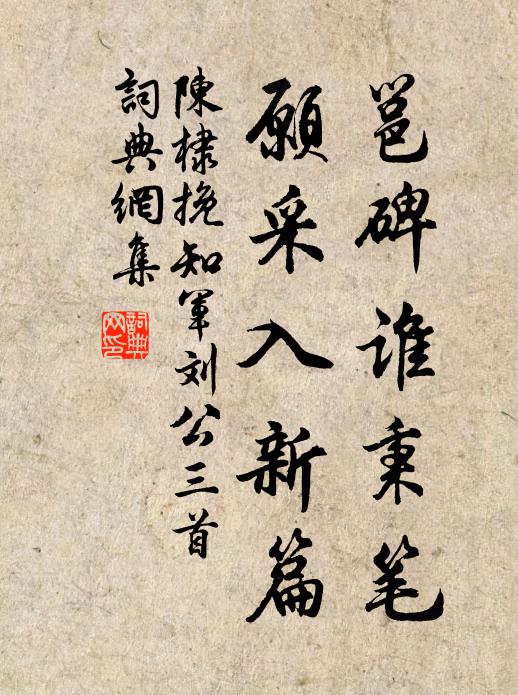 邕碑谁秉笔
願采入新篇
陳棣挽知軍刘公三首
詞典網集
詞典网印